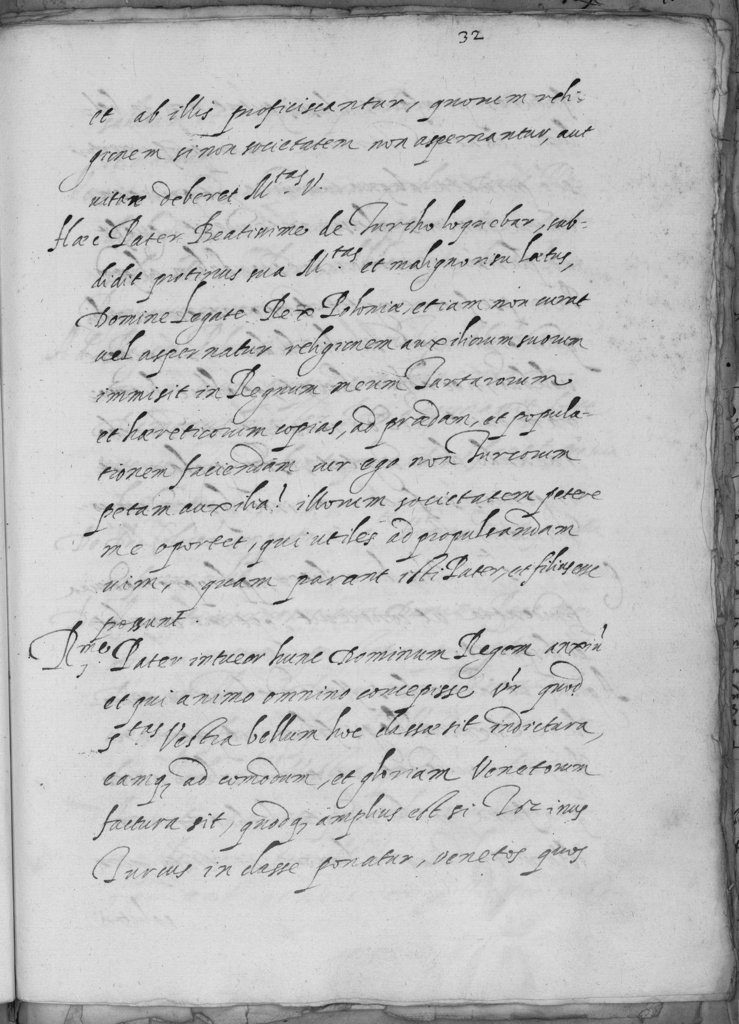 32
et ab illis proficiscantur, quorum reli-
gionem si non societatem non aspernantur, aut
vitare deberet M.tas V.
Haec Pater Beatissime de Turcho loquebar, sub-
didit protinus sua M.tas et maligno risu Laetus,
Domine Legate Rex Poloniae, etiam non curat
vel aspernatur religionem auxiliorum suorum
immisit in Regnum meum Tartarorum
et haereticorum copias, ad praedam, et popula-
tionem faciendam cur ego non Turcorum
petam auxilia? illorum societatem petere
me oportet, qui utiles ad propulsandam
vim, quam parant isti Pater, et filius esse
possunt.
R.me Pater intueor hunc Dominum Regem anxiu
et qui animo omnino concepisse vr quod
S.tas Vestra bellum hoc classae sit indictura,
eamq, ad comodum, et gloriam Venetorum
factura sit, quodq, amplius est si
Turcus in classe ponatur, venetos quos